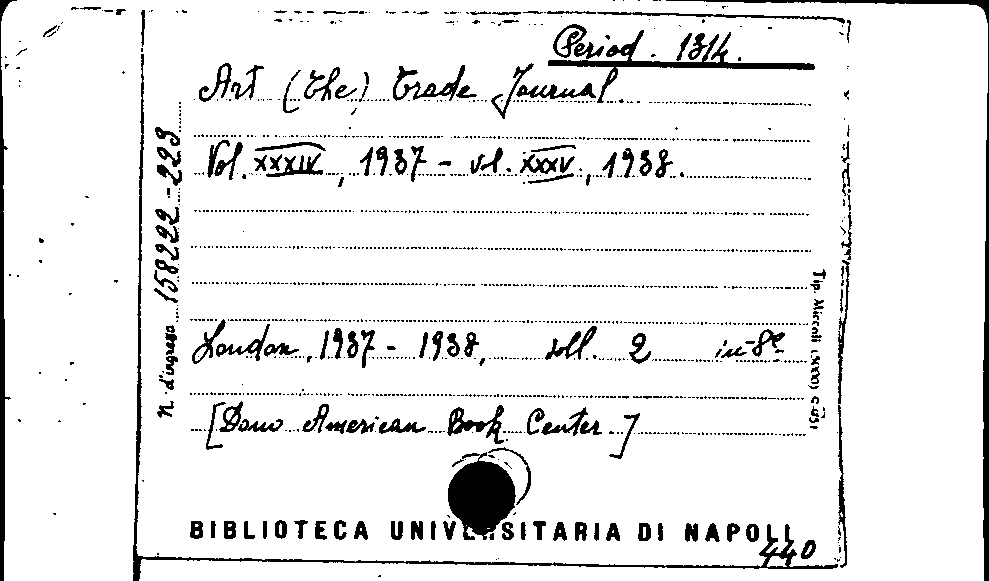 Period. 1314.
Art (the) trade Journal.
Vol. XXXIV, 1937 - vol. XXXV, 1938.
London, 1937 - 1938, voll. 2 in-8º
[Dono American Book Center.]
BIBLIOTECA UNIVERSITARIA DI NAPOLI
440
N. d'ingresso 158222-223
Tip. Miccoli (5000) c.